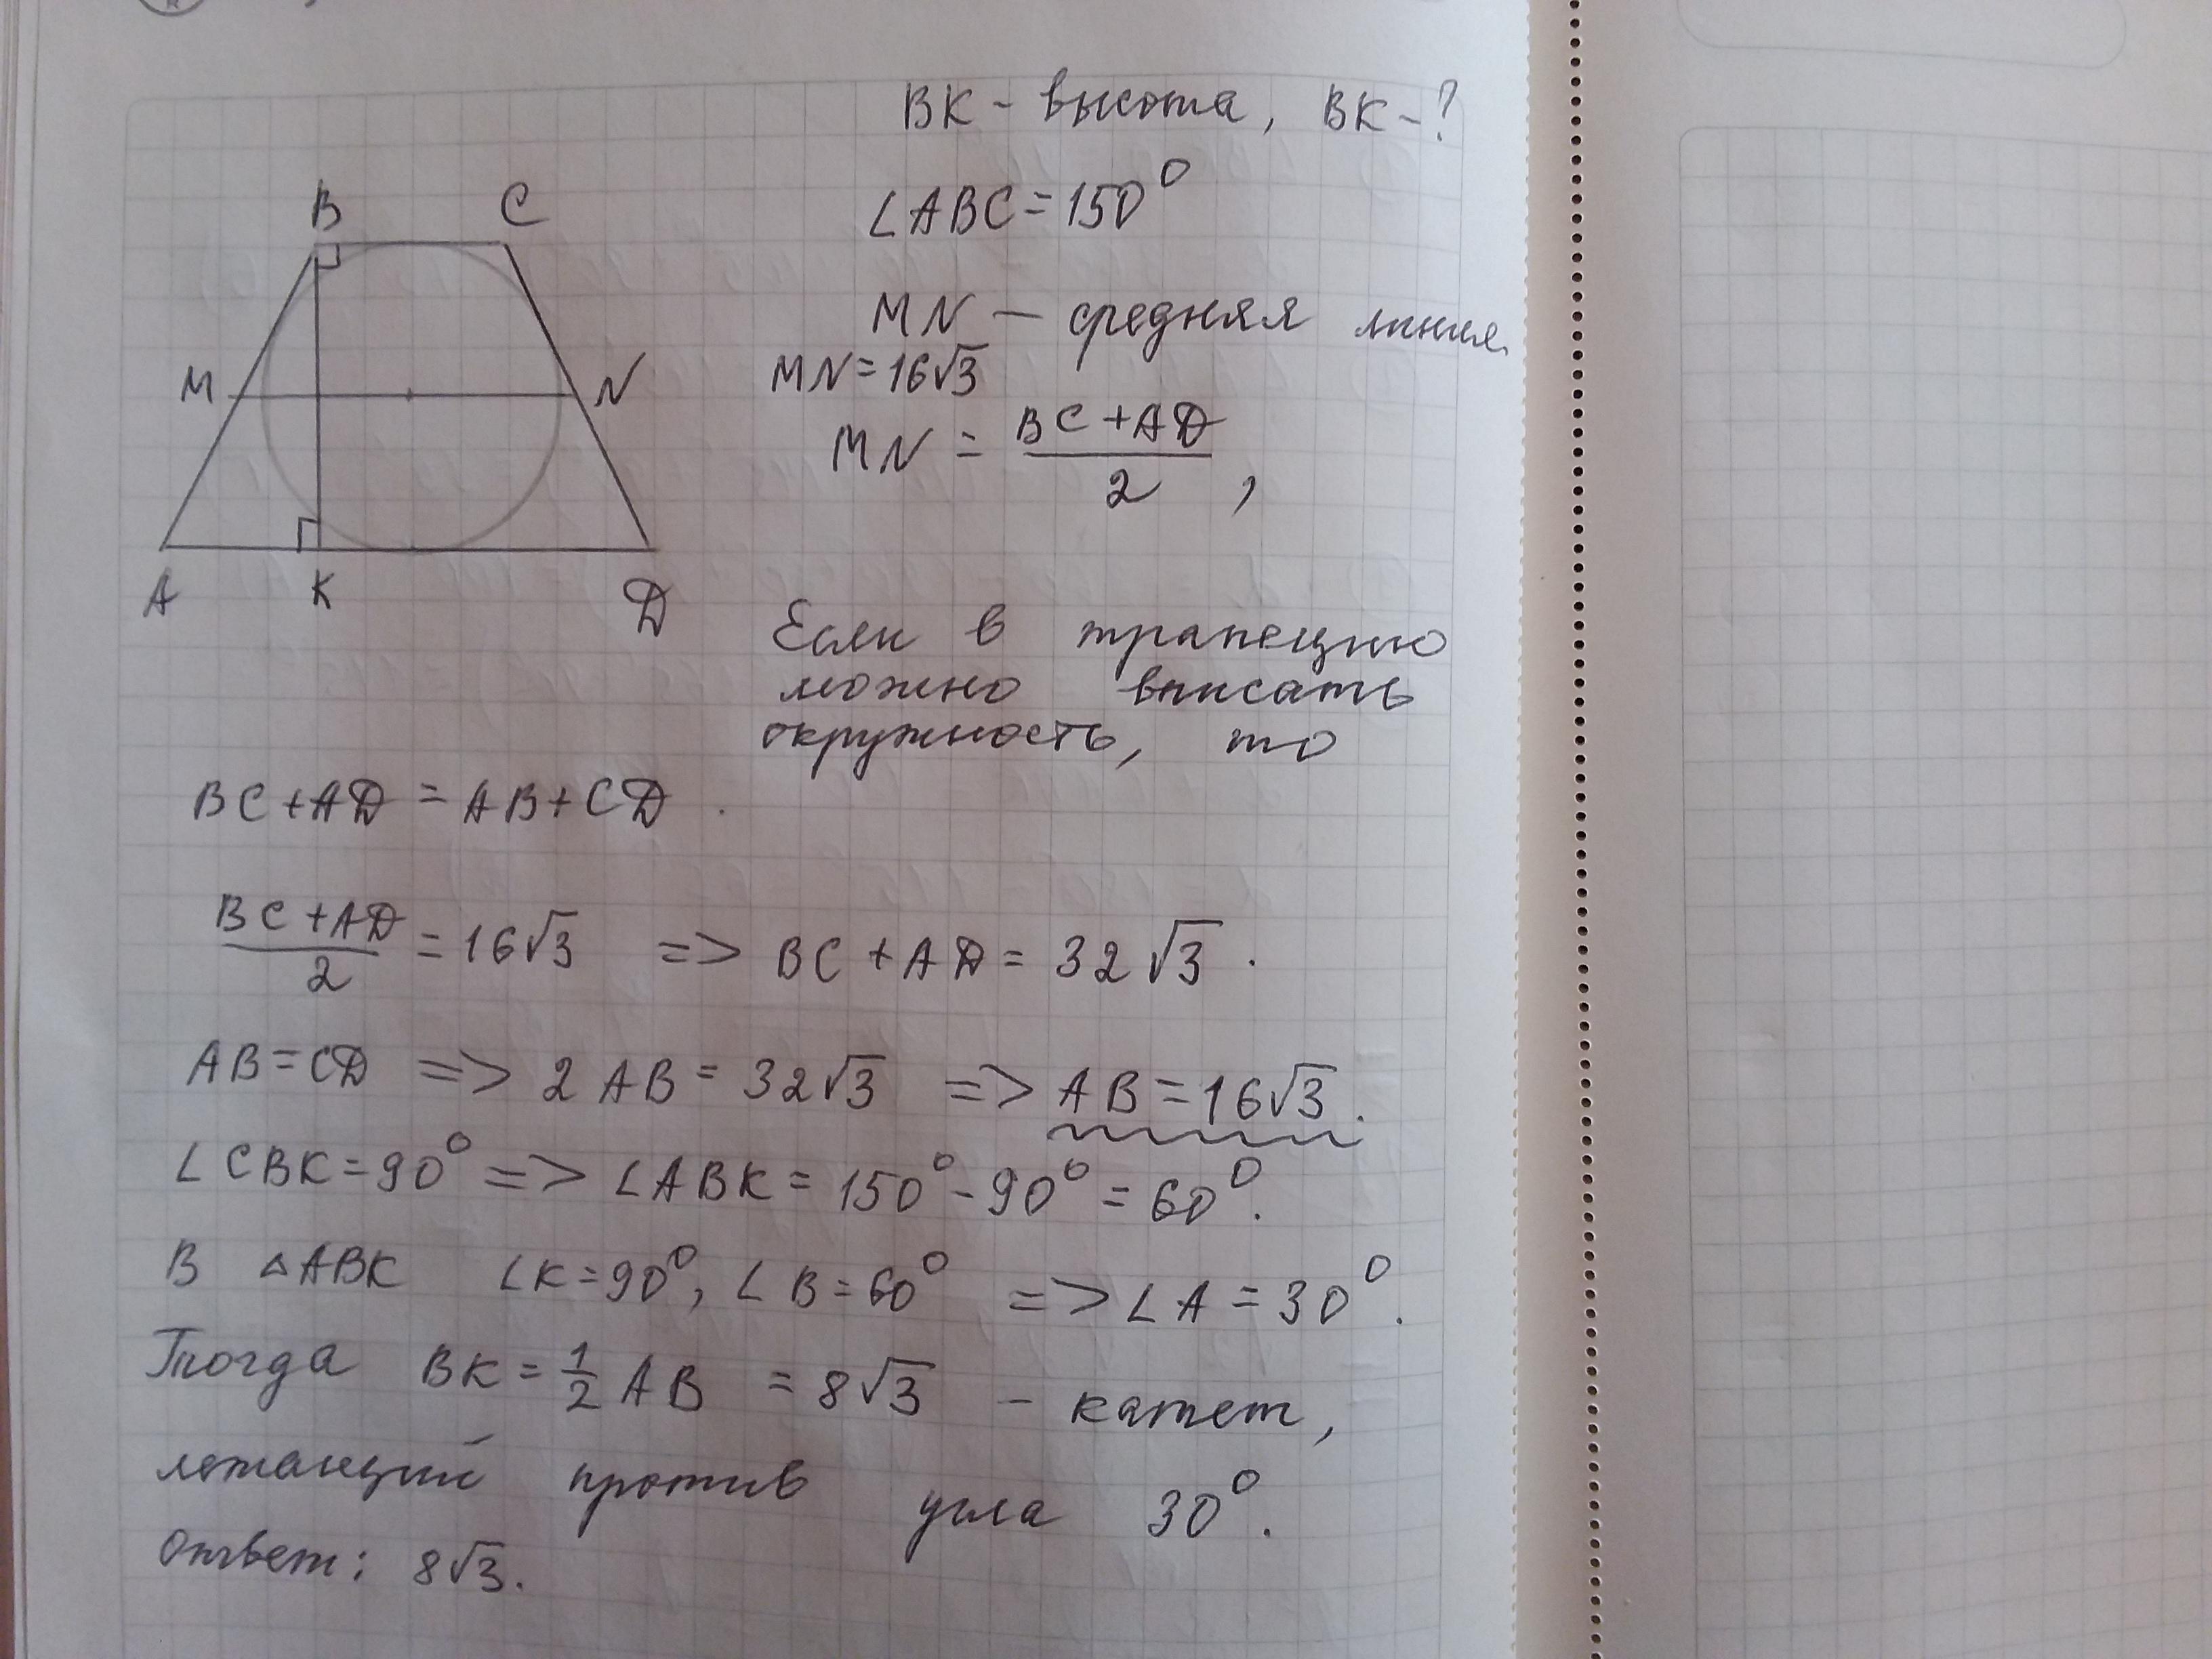 BK - высота, BK - ?
∠ABC = 150°
B C
MN — средняя линия.
MN = 16√3
M N
MN = (BC + AD)/2 ,
A K D
Если в трапецию
можно вписать
окружность, то
BC + AD = AB + CD .
(BC + AD)/2 = 16√3 => BC + AD = 32√3 .
AB = CD => 2AB = 32√3 => AB = 16√3 .
∠CBK = 90° => ∠ABK = 150° - 90° = 60° .
В △ABK ∠K = 90°, ∠B = 60° => ∠A = 30° .
Тогда BK = 1/2 AB = 8√3 - катет,
лежащий против угла 30° .
Ответ: 8√3.